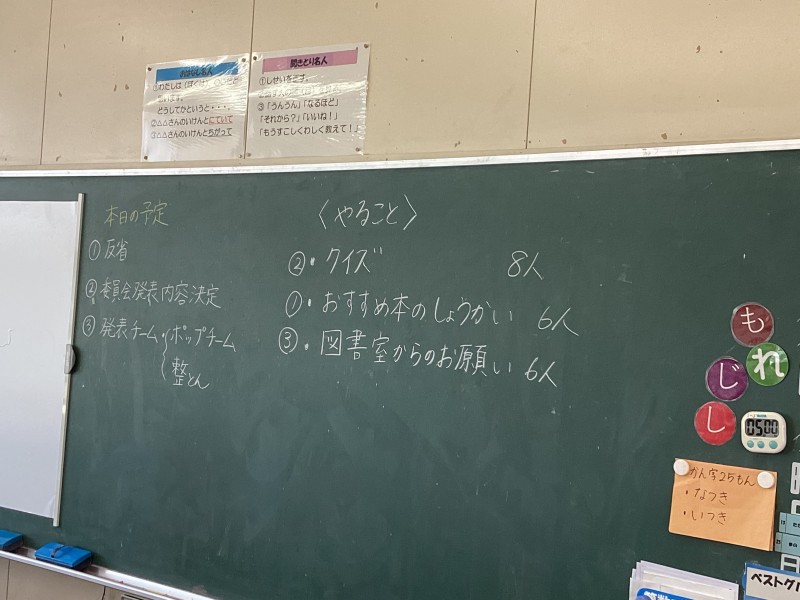 おはなし名人
どうしてかというと・・・。
②△△さんのいけんとにていて
③△△さんのいけんとちがって
聞きとり名人
①しせいをただす。
③「うんうん」「なるほど」
「それから？」「いいね！」
「もうすこしくわしく教えて！」
本日の予定
①反省
②委員会発表内容決定
③発表チーム・ポップチーム
整とん
〈やること〉
②・クイズ 8人
①・おすすめ本のしょうかい 6人
③・図書室からのお願い 6人
も
れ
じ
し
05:00
かん字25もん
・なつき
・いつき